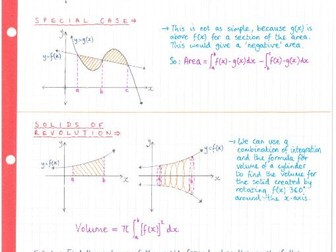 SPECIAL CASE ⇒
y
y=g(x)
y=f(x)
a
b
c
x
→ This is not as simple, because g(x) is
above f(x) for a section of the area.
This would give a 'negative' area.
So: Area = ∫ f(x) - g(x) dx - ∫ f(x) - g(x) dx
SOLIDS OF
REVOLUTION ⇒
y
y=f(x)
a
b
x
y
y=f(x)
a
b
x
→ We can use a
combination of integration
and the formula for
volume of a cylinder
to find the volume for
the solid created by
rotating f(x) 360°
around the x-axis.
Volume = π ∫ᵇₐ [f(x)]² dx